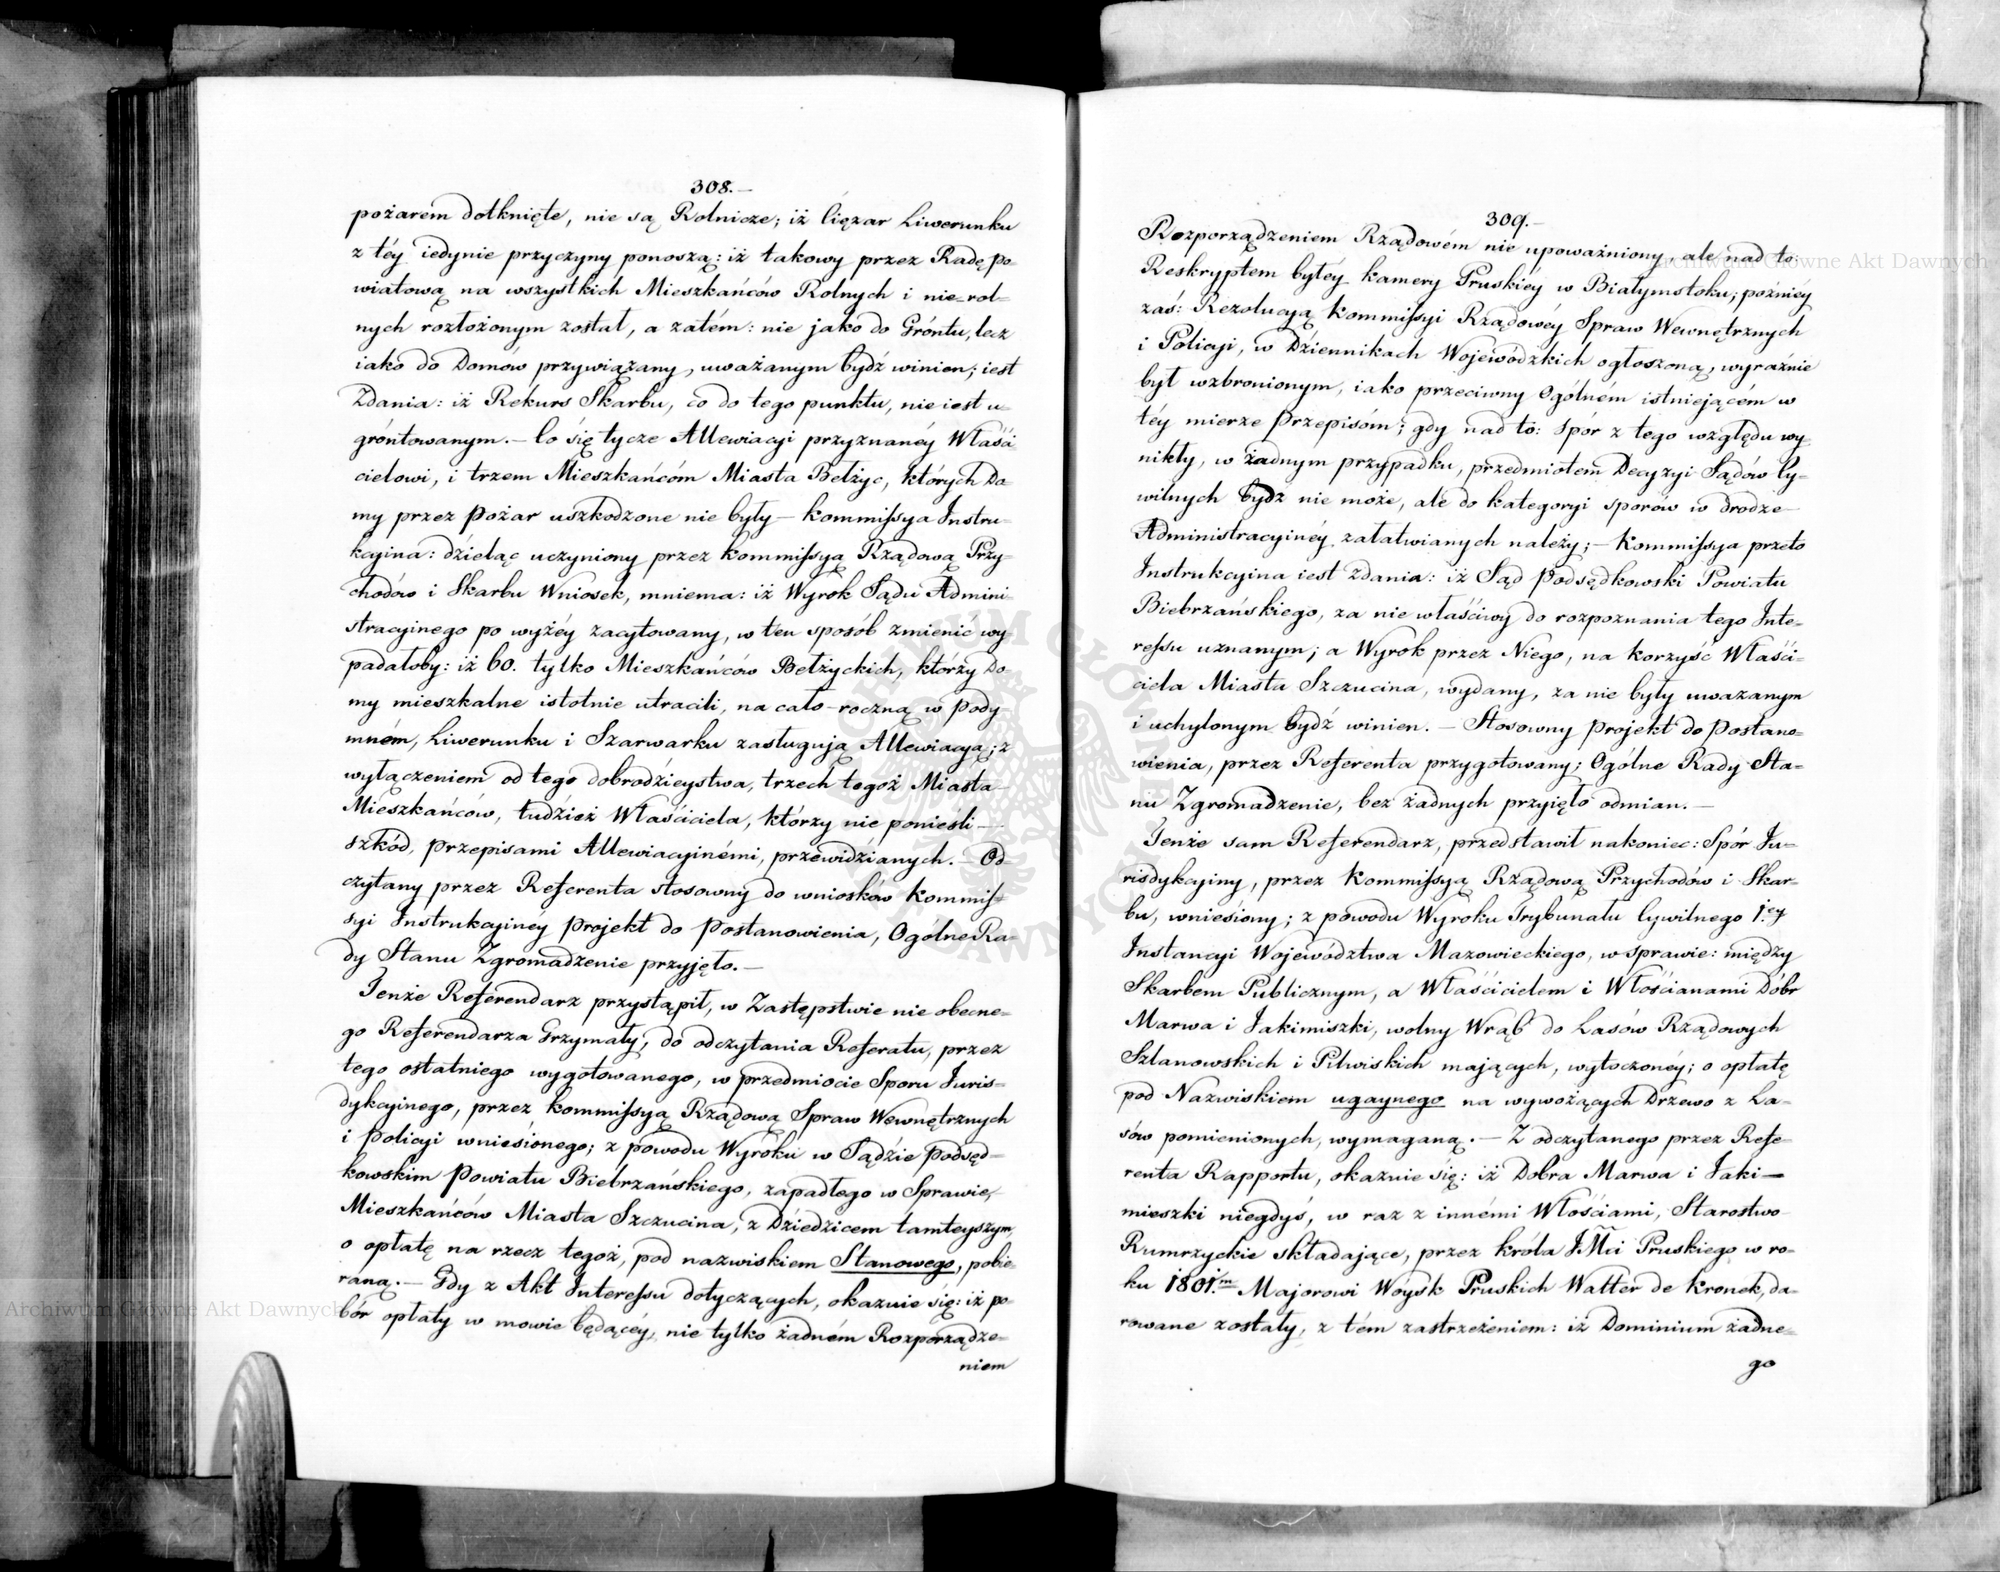 308.—
pożarem dotknięte, nie są Rolnicze; iż Ciężar Liwerunku
z téy iedynie przyczyny ponoszą: iż takowy przez Radę po-
wiatową na wszystkich Mieszkańców Rolnych i nie-rol-
nych rozłożonym został, a zatém: nie jako do Gróntu, lecz
iako do Domów przywiązany, uważanym bydź winien; iest
Zdania: iż Rekurs Skarbu, co do tego punktu, nie iest u-
gróntowanym.— Co się tycze Allewiacyi przyznanéy Właści-
cielowi, i trzem Mieszkańcóm Miasta Bełżyc, których Do-
my przez Pożar uszkodzone nie były — Kommissya Instru-
kcyina: dzieląc uczyniony przez Kommissyą Rządową Przy-
chodów i Skarbu Wniosek, mniema: iż Wyrok Sądu Admini-
stracyinego po wyżéy zacytowany, w ten sposób zmienić wy-
padałoby: iż 60. tylko Mieszkańców Bełżyckich, którzy Do-
my mieszkalne istotnie utracili, na cało-roczną w Pody-
mném, Liwerunku i Szarwarku zasługują Allewiacyą; z
wyłączeniem od tego dobrodzieystwa, trzech tegoż Miasta
Mieszkańców, tudzież Właściciela, którzy nie ponieśli —
szkód, przepisami Allewiacyinémi, przewidzianych. — Od-
czytany przez Referenta stosowny do wniosków Kommis-
syi Instrukcyinéy Projekt do Postanowienia, Ogólne Ra-
dy Stanu Zgromadzenie przyjęło.—
Tenże Referendarz przystąpił, w Zastępstwie nie obecne-
go Referendarza Grzymały, do odczytania Referatu, przez
tego ostatniego wygotowanego, w przedmiocie Sporu Juris-
dykcyinego, przez Kommissyą Rządową Spraw Wewnętrznych
i Policyi wniesionego; z powodu Wyroku w Sądzie Podsęd-
kowskim Powiatu Biebrzańskiego, zapadłego w Sprawie,
Mieszkańców Miasta Szczucina, z Dziedzicem tamteyszym,
o opłatę na rzecz tegoż, pod nazwiskiem Stanowego, pobie-
raną.— Gdy z Akt Interessu dotyczących, okazuie się: iż po-
bór opłaty w mowie będącéy, nie tylko żadném Rozporządze-
niem
309.—
Rozporządzeniem Rządowém nie upoważniony, ale nad to:
Reskryptem byłéy Kamery Pruskiéy w Białymstoku; poźniéy
zaś: Rezolucyą Kommissyi Rządowéy Spraw Wewnętrznych
i Policyi, w Dziennikach Wojewódzkich ogłoszoną, wyraźnie
był wzbronionym, iako przeciwny Ogólném istniejącém w
téy mierze Przepisóm; gdy nad to: spór z tego względu wy-
nikły, w żadnym przypadku, przedmiotem Decyzyi Sądów Cy-
wilnych bydź nie może, ale do kategoryi sporów w drodze
Administracyinéy załatwianych należy; — Kommissya przeto
Instrukcyina iest Zdania: iż Sąd Podsędkowski Powiatu
Biebrzańskiego, za nie właściwy do rozpoznania tego Inte-
ressu uznanym; a Wyrok przez Niego, na korzyść Właści-
ciela Miasta Szczucina, wydany, za nie były uważanym
i uchylonym bydź winien. — Stosowny Projekt do Postano-
wienia, przez Referenta przygotowany; Ogólne Rady Sta-
nu Zgromadzenie, bez żadnych przyięło odmian.—
Tenże sam Referendarz, przedstawił nakoniec: Spór Ju-
risdykcyiny, przez Kommissyą Rządową Przychodów i Skar-
bu, wniesiony; z powodu Wyroku Trybunału Cywilnego 1.ey
Instancyi Województwa Mazowieckiego, w sprawie: między
Skarbem Publicznym, a Właścicielem i Włościanami Dóbr
Marwa i Jakimiszki, wolny Wrąb do Lasów Rządowych
Szlanowskich i Pilwiskich mających, wytoczonéy; o opłatę
pod Nazwiskiem ugaynego na wywożących Drzewo z La-
sów pomienionych, wymaganą.— Z odczytanego przez Refe-
renta Rapportu, okazuie się: iż Dobra Marwa i Jaki—
mieszki niegdyś, w raz z innémi Włościami, Starostwo
Rumrzyckie składające, przez Króla JMci Pruskiego w ro-
ku 1801.m Majorowi Woysk Pruskich Walter de Kronek, da-
rowane zostały, z tém zastrzeżeniem: iż Dominium żadne-
go
Archiwum Główne Akt Dawnych
Archiwum Główne Akt Dawnych